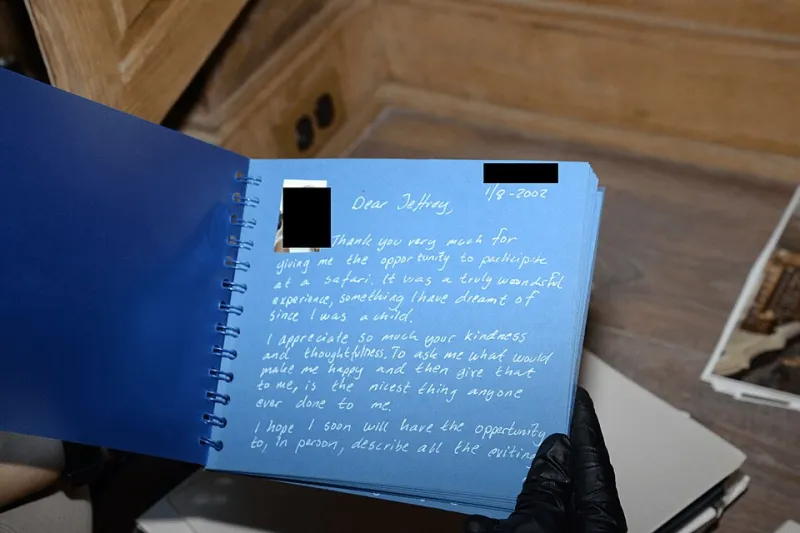 1/8-2002
Dear Jeffrey,
Thank you very much for
giving me the opportunity to participate
at a safari. It was a truly woundsful
experience, something I have dreamt of
since I was a child.
I appreciate so much your kindness
and thoughtfulness. To ask me what would
make me happy and then give that
to me, is the nicest thing anyone
ever done to me.
I hope I soon will have the opportunity
to, in person, describe all the exiting